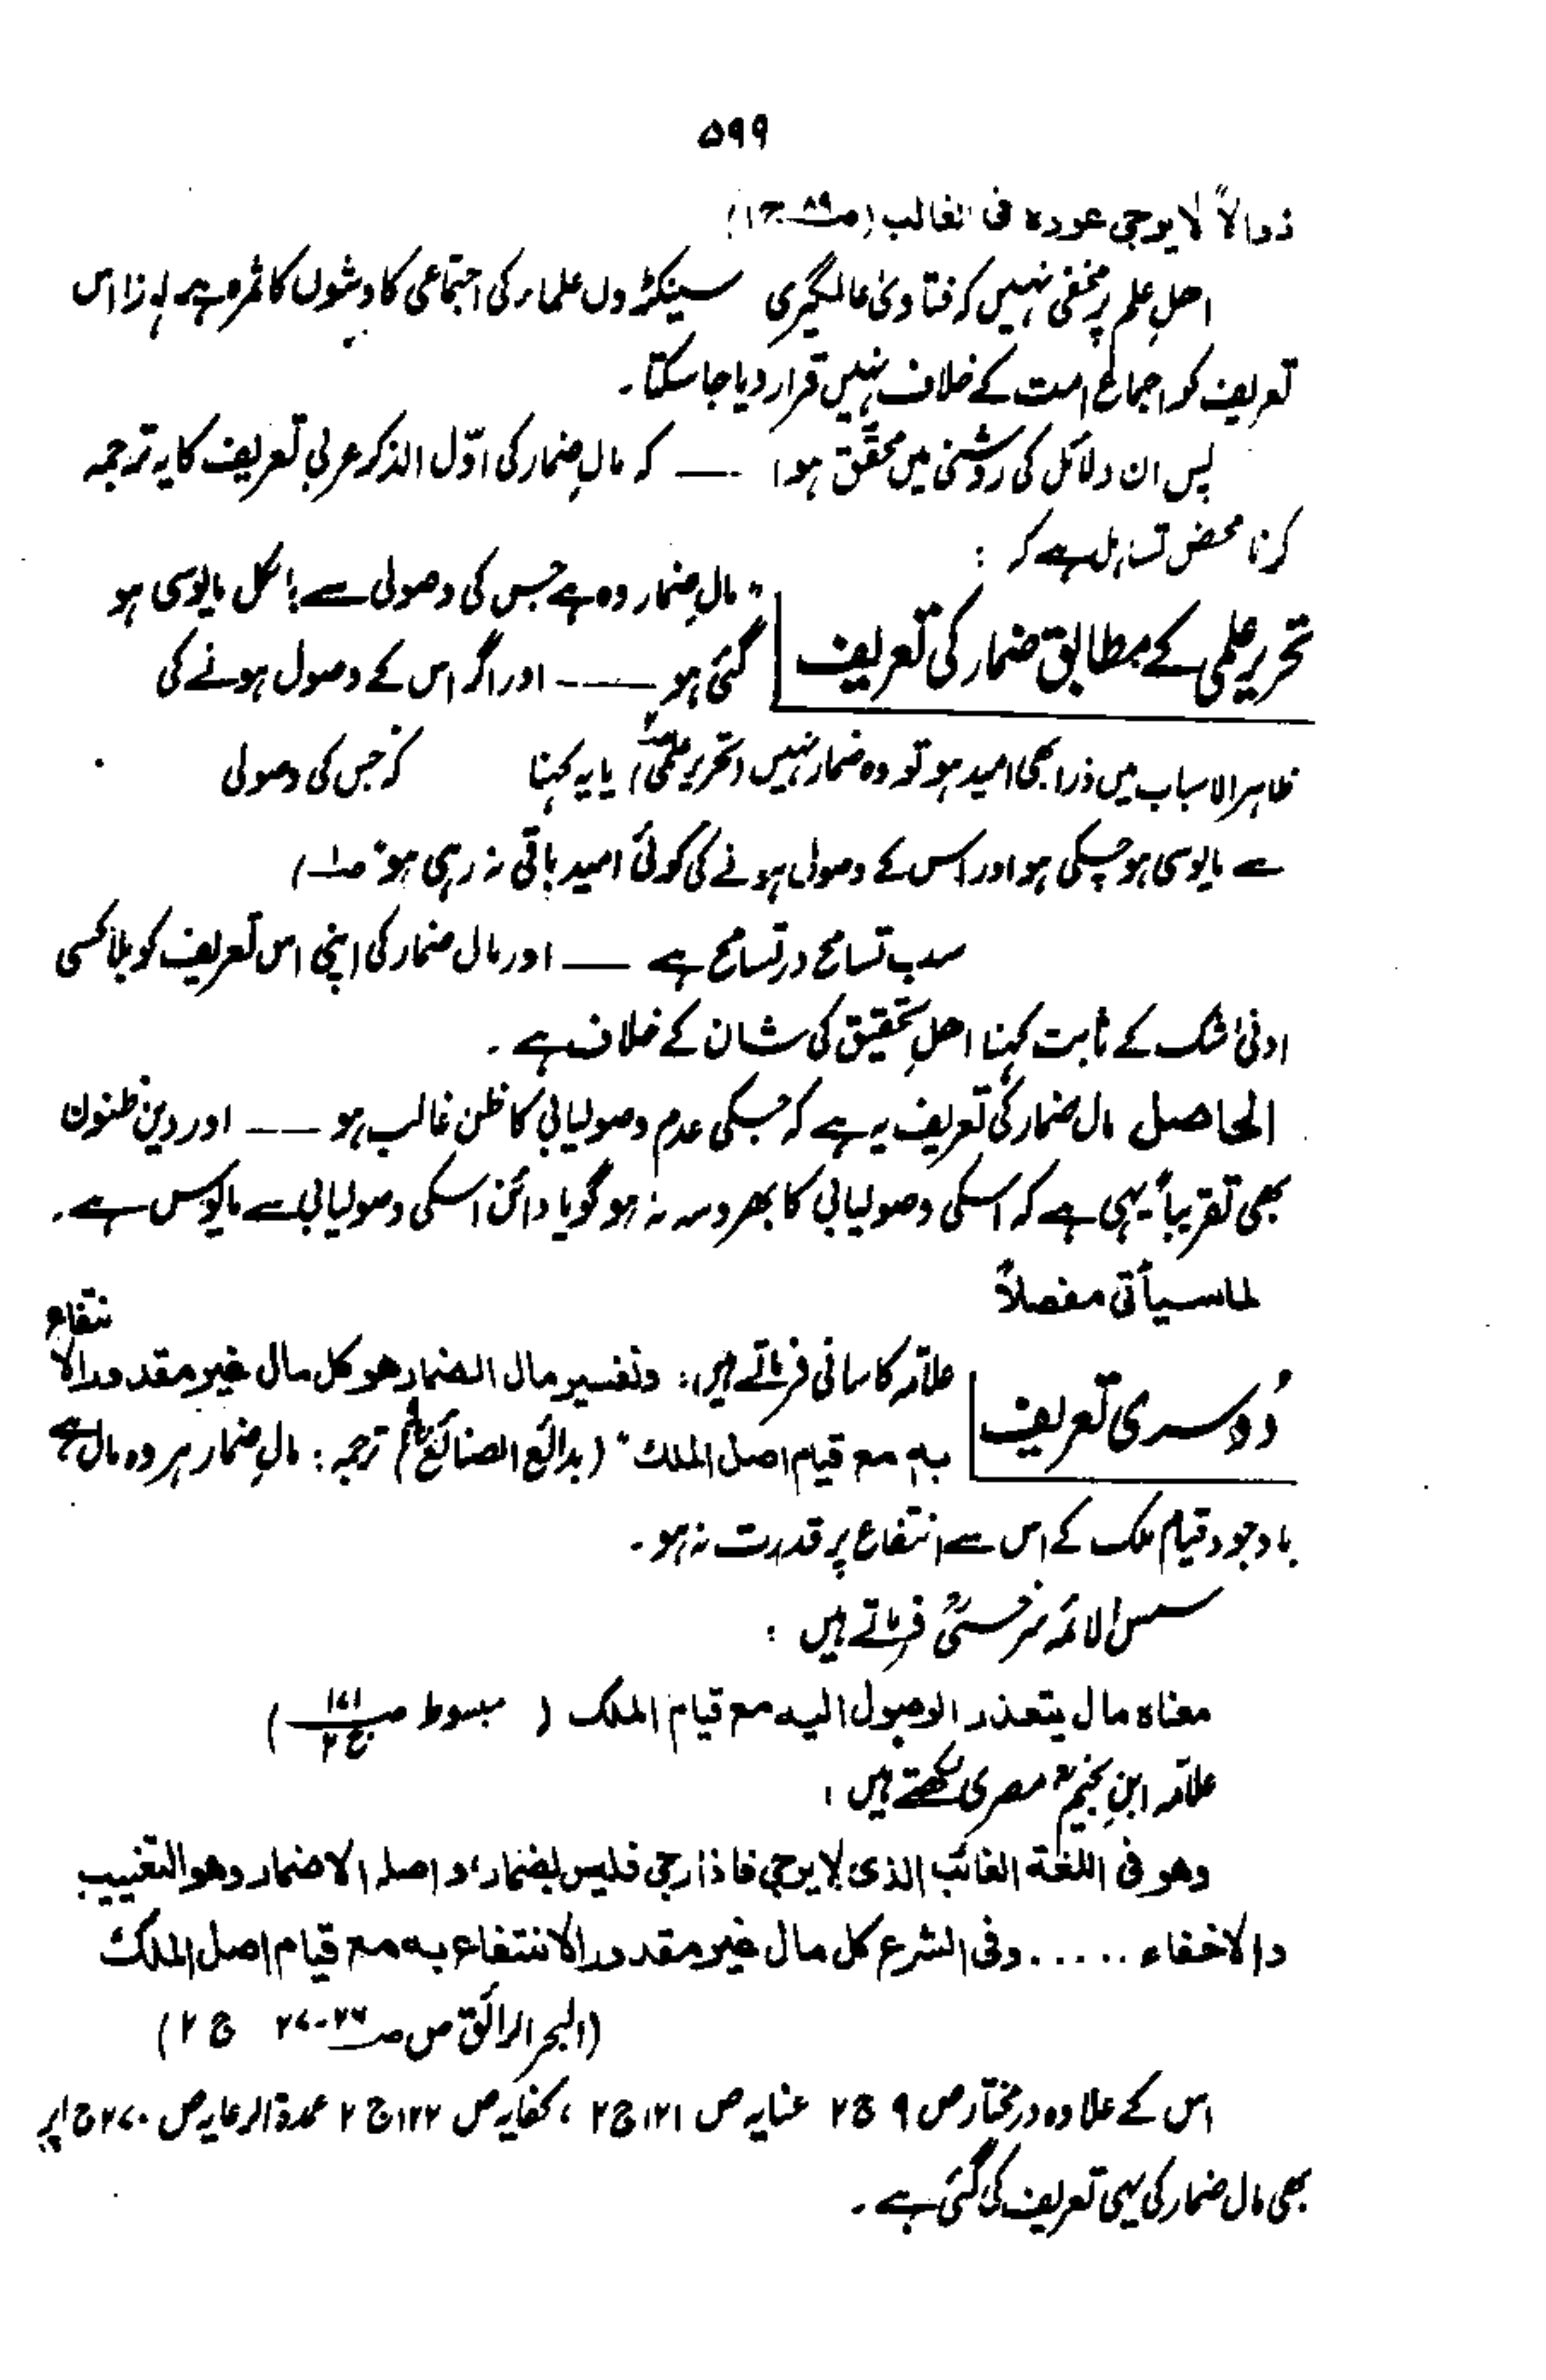 ۵۹۹
زوالاً لا يرجى عوده فى الغالب (ص۸۹ ج۱)
اھلِ علم پر مخفی نہیں کہ فتاویٰ عالمگیری سینکڑوں علماء کی اجتماعی کاوشوں کا ثمرہ ہے لہٰذا اس
تعریف کو اجماعِ امت کے خلاف نہیں قرار دیا جا سکتا۔
پس ان دلائل کی روشنی میں محقَّق ہوا — کہ مالِ ضمار کی اوّل الذکر عربی تعریف کا یہ ترجمہ
کرنا محض تساہل ہے کہ :
تحریر علمی کے مطابق ضمار کی تعریف
"مالِ ضمار وہ ہے جس کی وصولی سے بالکل مایوسی ہو
گئی ہو —— اور اگر اس کے وصول ہونے کی
ظاہر الاسباب میں ذرا بھی امید ہو تو وہ ضمار نہیں (تحریر علمی) یا یہ کہنا کہ جس کی وصولی
سے مایوسی ہو چکی ہو اور اس کے وصول ہونے کی کوئی امید باقی نہ رہی ہو" ص۱)
سب تسامح در تسامح ہے — اور مال ضمار کی اپنی اس تعریف کو بلا کسی
ادنیٰ شک کے ثابت کہنا اھلِ تحقیق کی شان کے خلاف ہے۔
الحاصل مال ضمار کی تعریف یہ ہے کہ جسکی عدم وصولیابی کا ظن غالب ہو —— اور دین ظنون
بھی تقریباً یہی ہے کہ اسکی وصولیابی کا بھروسہ نہ ہو گویا دائن اسکی وصولیابی سے مایوس ہے۔
لما سيأتى مفصلاً
دُوسری تعریف
علامہ کاسانی فرماتے ھیں: وتفسير مال الضمار هو كل مال غير مقدور الانتفاع
به مع قيام اصل الملك" (بدائع الصنائع) ترجمہ: مالِ ضمار ہر وہ مال ہے
باوجود قیام ملک کے اس سے انتفاع پر قدرت نہ ہو۔
شمس الائمہ سرخسیؒ فرماتے ہیں :
معناه مال يتعذر الوصول اليه مع قيام الملك ( مبسوط ص۱۷۱ ج۲)
علامہ ابنِ نجیمؒ مصری لکھتے ہیں :
وهو فى اللغة الغائب الذى لا يرجى فاذا رجى فليس بضمار واصله الاضمار وهو التغييب
والاخفاء ..... وفى الشرع كل مال غير مقدور الانتفاع به مع قيام اصل الملك
(البحر الرائق ص ص۲۶-۲۷ ج ۲)
اس کے علاوہ درمختار ص ۹ ج ۲ عنایہ ص ۱۲۱ ج ۲ ، کفایہ ص ۱۲۲ ج ۲ عمدۃ الرعایہ ص ۲۷۰ ج ۱ پر
بھی مال ضمار کی یہی تعریف کی گئی ہے۔